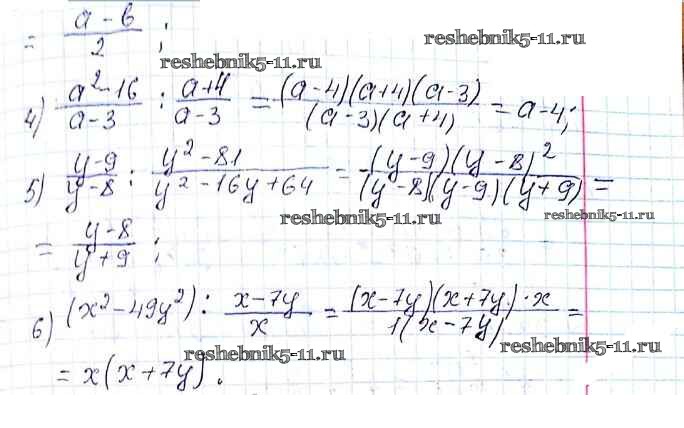 = (a - b)/2 ;
reshebnik5-11.ru
reshebnik5-11.ru
4) (a² - 16)/(a - 3) : (a + 4)/(a - 3) = ((a - 4)(a + 4)(a - 3))/((a - 3)(a + 4)) = a - 4;
5) (y - 9)/(y - 8) : (y² - 81)/(y² - 16y + 64) = ((y - 9)(y - 8)²)/((y - 8)(y - 9)(y + 9)) =
reshebnik5-11.ru
reshebnik5-11.ru
= (y - 8)/(y + 9) ;
6) (x² - 49y²) : (x - 7y)/x = ((x - 7y)(x + 7y) · x)/(1(x - 7y)) =
reshebnik5-11.ru
reshebnik5-11.ru
= x(x + 7y).